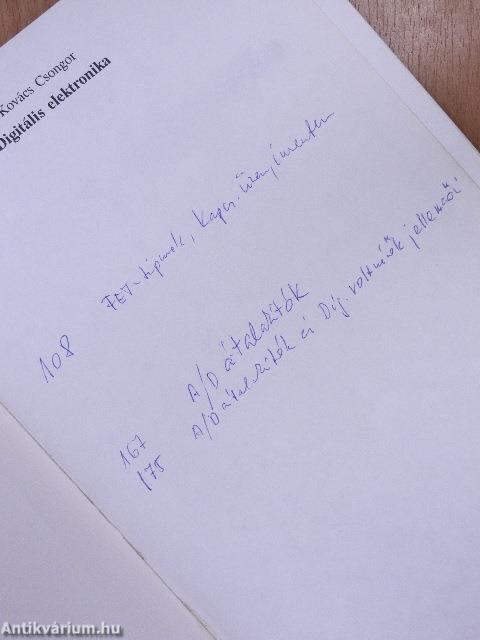 Kovács Csongor
Digitális elektronika
108 FET-típusok, Kapcs. üzem, inverter
167 A/D átalakítók
175 A/D átalakítók és Dig. voltmérők jellemzői
Antikvárium.hu